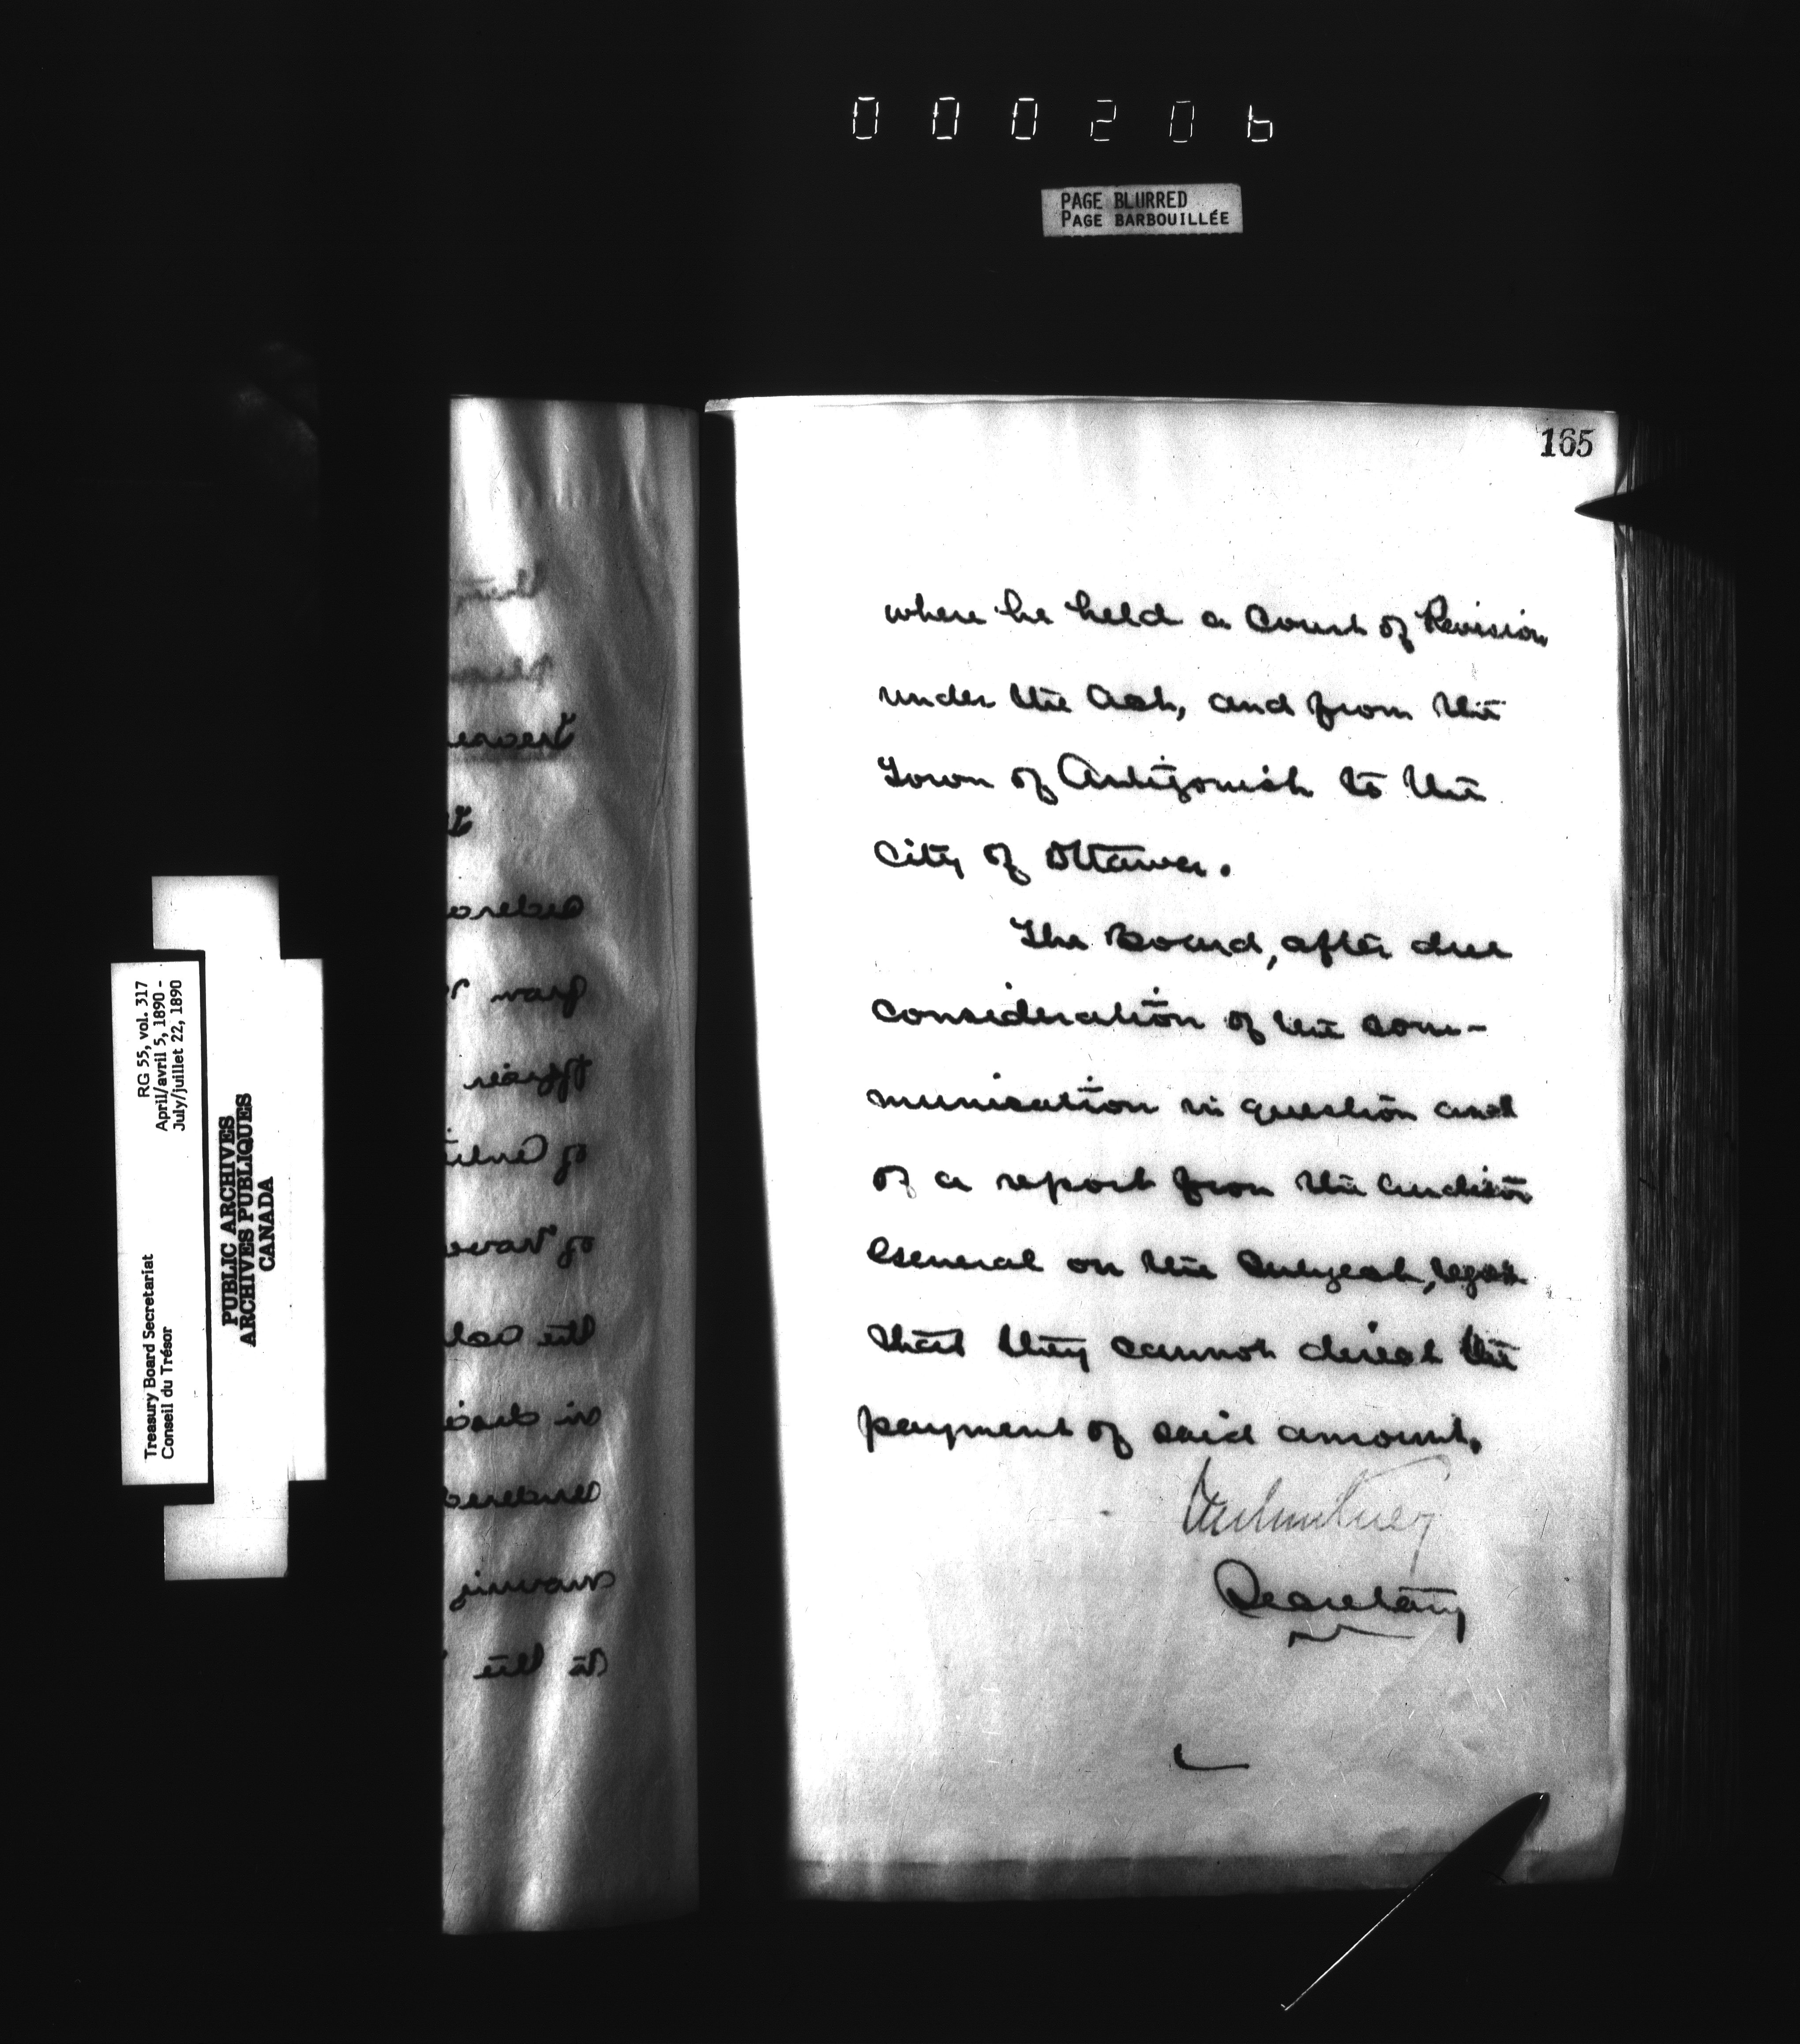 000206
PAGE BLURRED
PAGE BARBOUILLÉE
165
where he held a Court of Revision
under the Act, and from the
Town of Antigonish to the
City of Ottawa.
The Board, after due
consideration of the com-
munication in question and
of a report from the Auditor
General on the subject,
that they cannot direct the
payment of said amount.
Secretary
RG 55, vol. 317
April/avril 5, 1890 -
July/juillet 22, 1890
Treasury Board Secretariat
Conseil du Trésor
PUBLIC ARCHIVES
ARCHIVES PUBLIQUES
CANADA